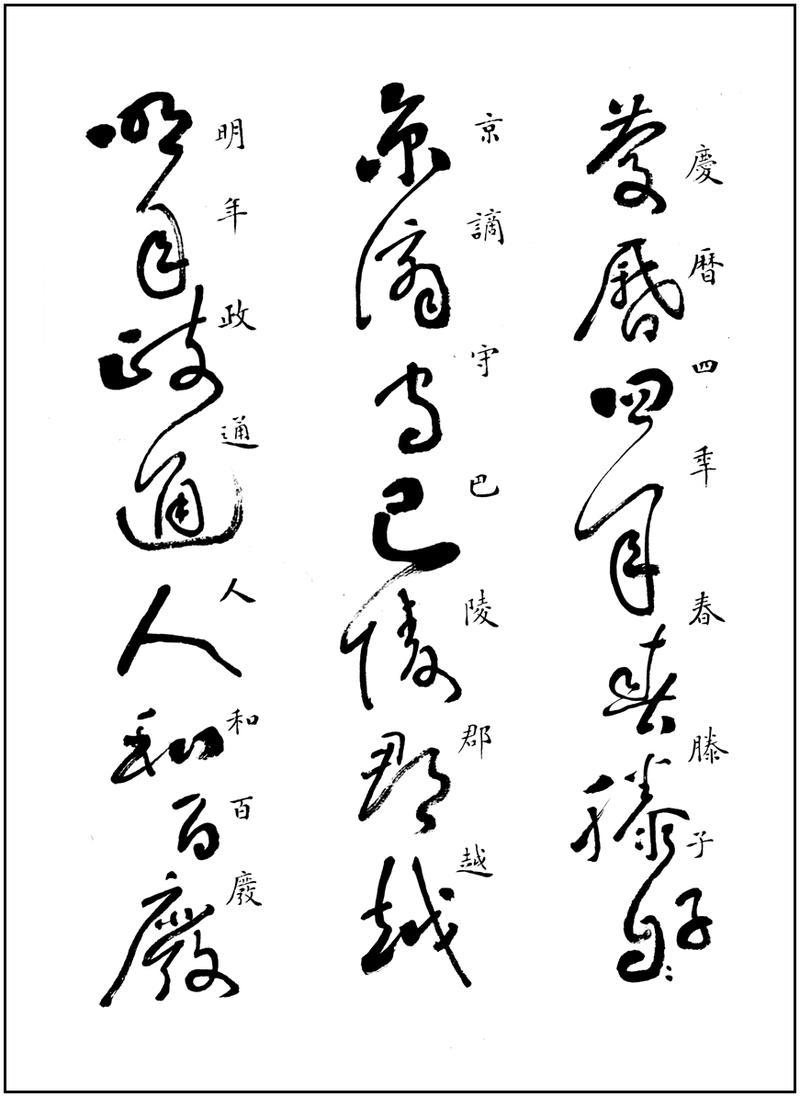 慶曆四秊春滕子
慶曆四年春滕子自
京謫守巴陵郡越
京謫守巴陵郡越
明年政通人和百廢
明年政通人和百廢